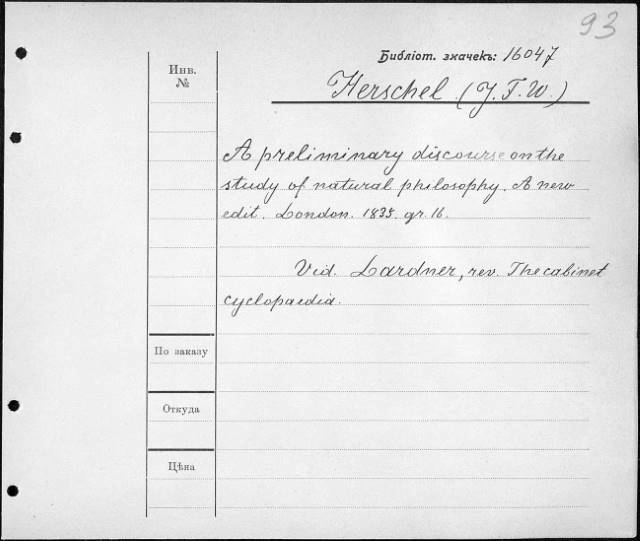 93
Библіот. значекъ: 16047
Инв.
№
Herschel (J. F. W.)
A preliminary discourse on the
study of natural philosophy. A new
edit. London. 1835. gr. 16.
Vid. Lardner, rev. The cabinet
cyclopaedia.
По заказу
Откуда
Цѣна